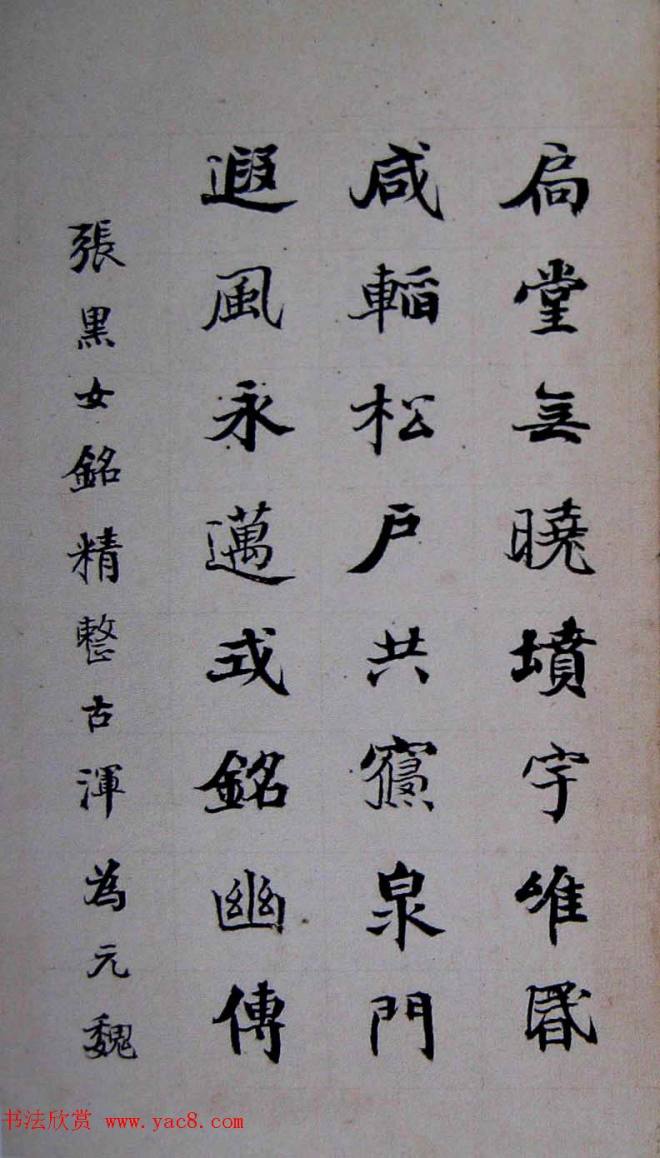 扃堂無曉墳宇唯昬
咸韜松户共寢泉門
遐風永邁式銘幽傳
張黑女銘精整古渾為元魏
书法欣赏 www.yac8.com